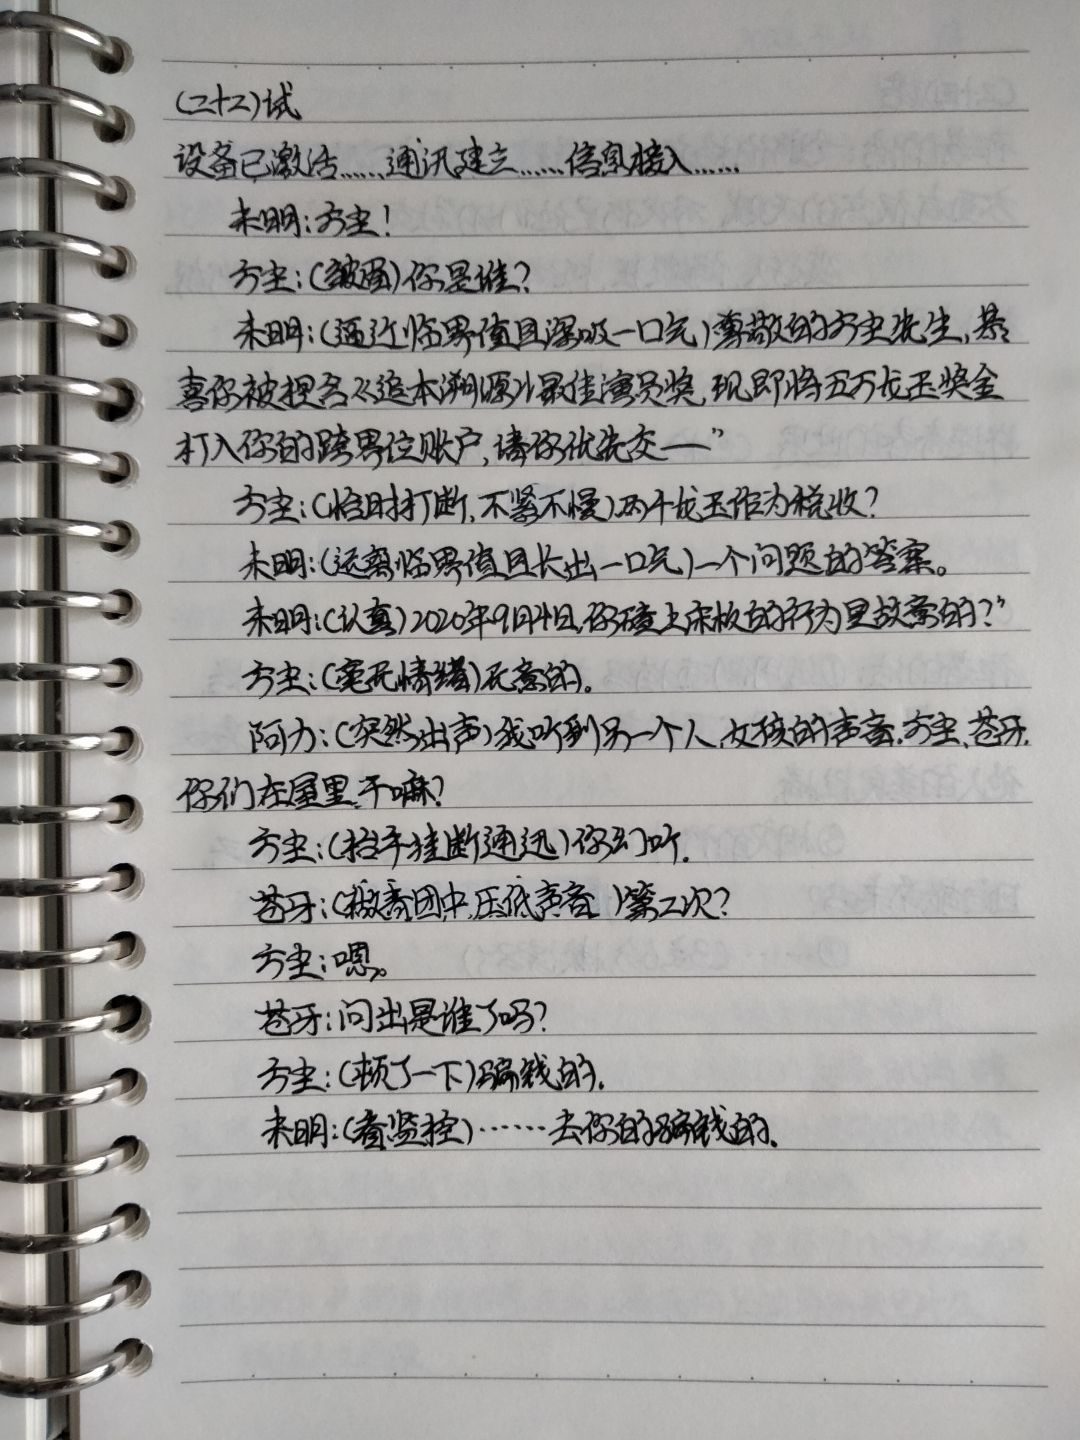 (二十二)试
设备已激活……通讯建立……信息接入……
未明:方尘!
方尘:(皱眉)你是谁?
未明:(逼近临界值且深吸一口气)尊敬的方尘先生,恭
喜你被提名《追本溯源》最佳演员奖,现即将五万龙玉奖金
打入你的跨界位账户,请你优先交——”
方尘:(恰时打断,不紧不慢)两千龙玉作为税收?
未明:(远离临界值且长出一口气)一个问题的答案。
未明:(认真)2020年9月4日,你碰上床板的行为是故意的?”
方尘:(毫无情绪)无意的。
阿力:(突然出声)我听到另一个人,女孩的声音,方尘、苍牙,
你们在屋里干嘛?
方尘:(抬手挂断通迅)你幻听.
苍牙:(被窝团中,压低声音)第二次?
方尘:嗯。
苍牙:问出是谁了吗?
方尘:(顿了一下)骗钱的.
未明:(看监控)……去你的骗钱的.